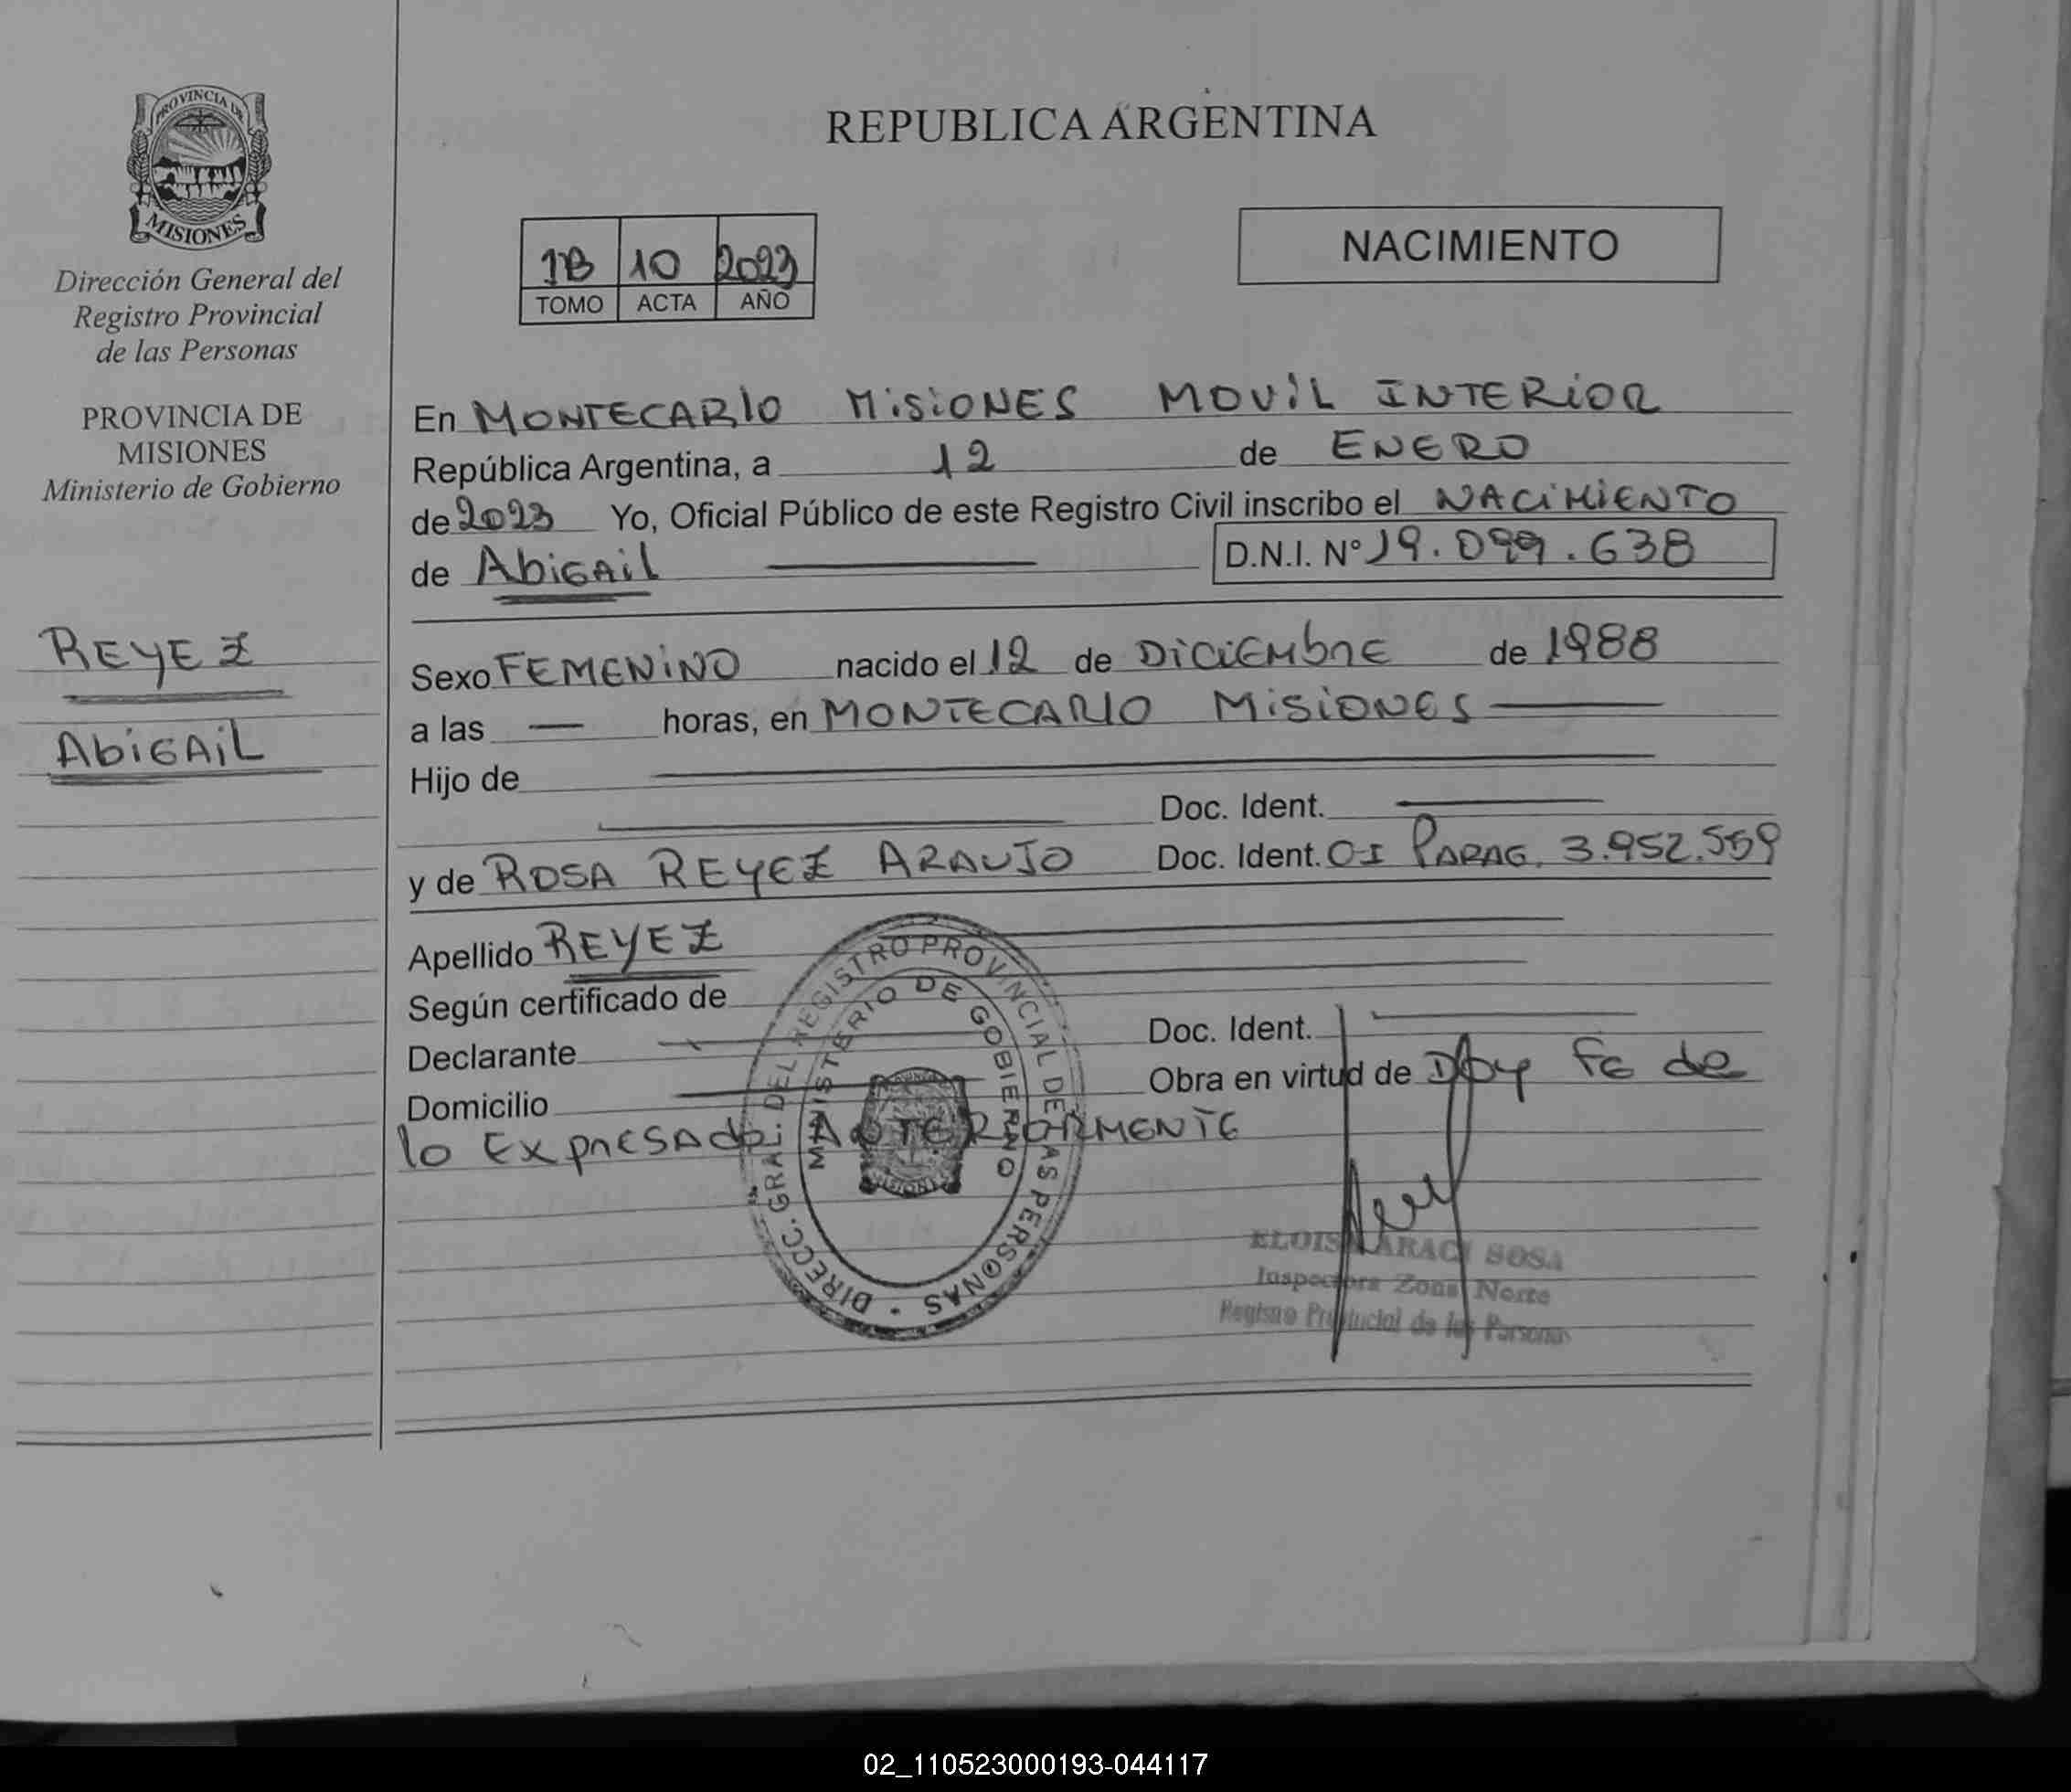 PROVINCIA DE
MISIONES
Dirección General del
Registro Provincial
de las Personas
PROVINCIA DE
MISIONES
Ministerio de Gobierno
REYEZ
ABiGAiL
REPUBLICA ARGENTINA
1B 10 2023
TOMO ACTA AÑO
NACIMIENTO
En MONTECARlO MiSiONES MOViL INTERiOR
República Argentina, a 12 de ENERO
de 2023 Yo, Oficial Público de este Registro Civil inscribo el NACiMiENTO
de AbiGAil D.N.I. N° 19.099.638
Sexo FEMENiNO nacido el 12 de DiCiEMbRE de 1988
a las — horas, en MONTECARlO MiSiONES
Hijo de
Doc. Ident.
y de ROSA REYEZ ARAUJO Doc. Ident. CI PARAG. 3.952.559
Apellido REYEZ
Según certificado de
Declarante Doc. Ident.
Domicilio Obra en virtud de Doy FE de
lo ExpRESAdo ANTERiORMENTE
DIRECC. GRAL. DEL REGISTRO PROVINCIAL DE LAS PERSONAS
MINISTERIO DE GOBIERNO
MISIONES
ELOISA ARACI SOSA
Inspectora Zona Norte
Registro Provincial de las Personas
02_110523000193-044117